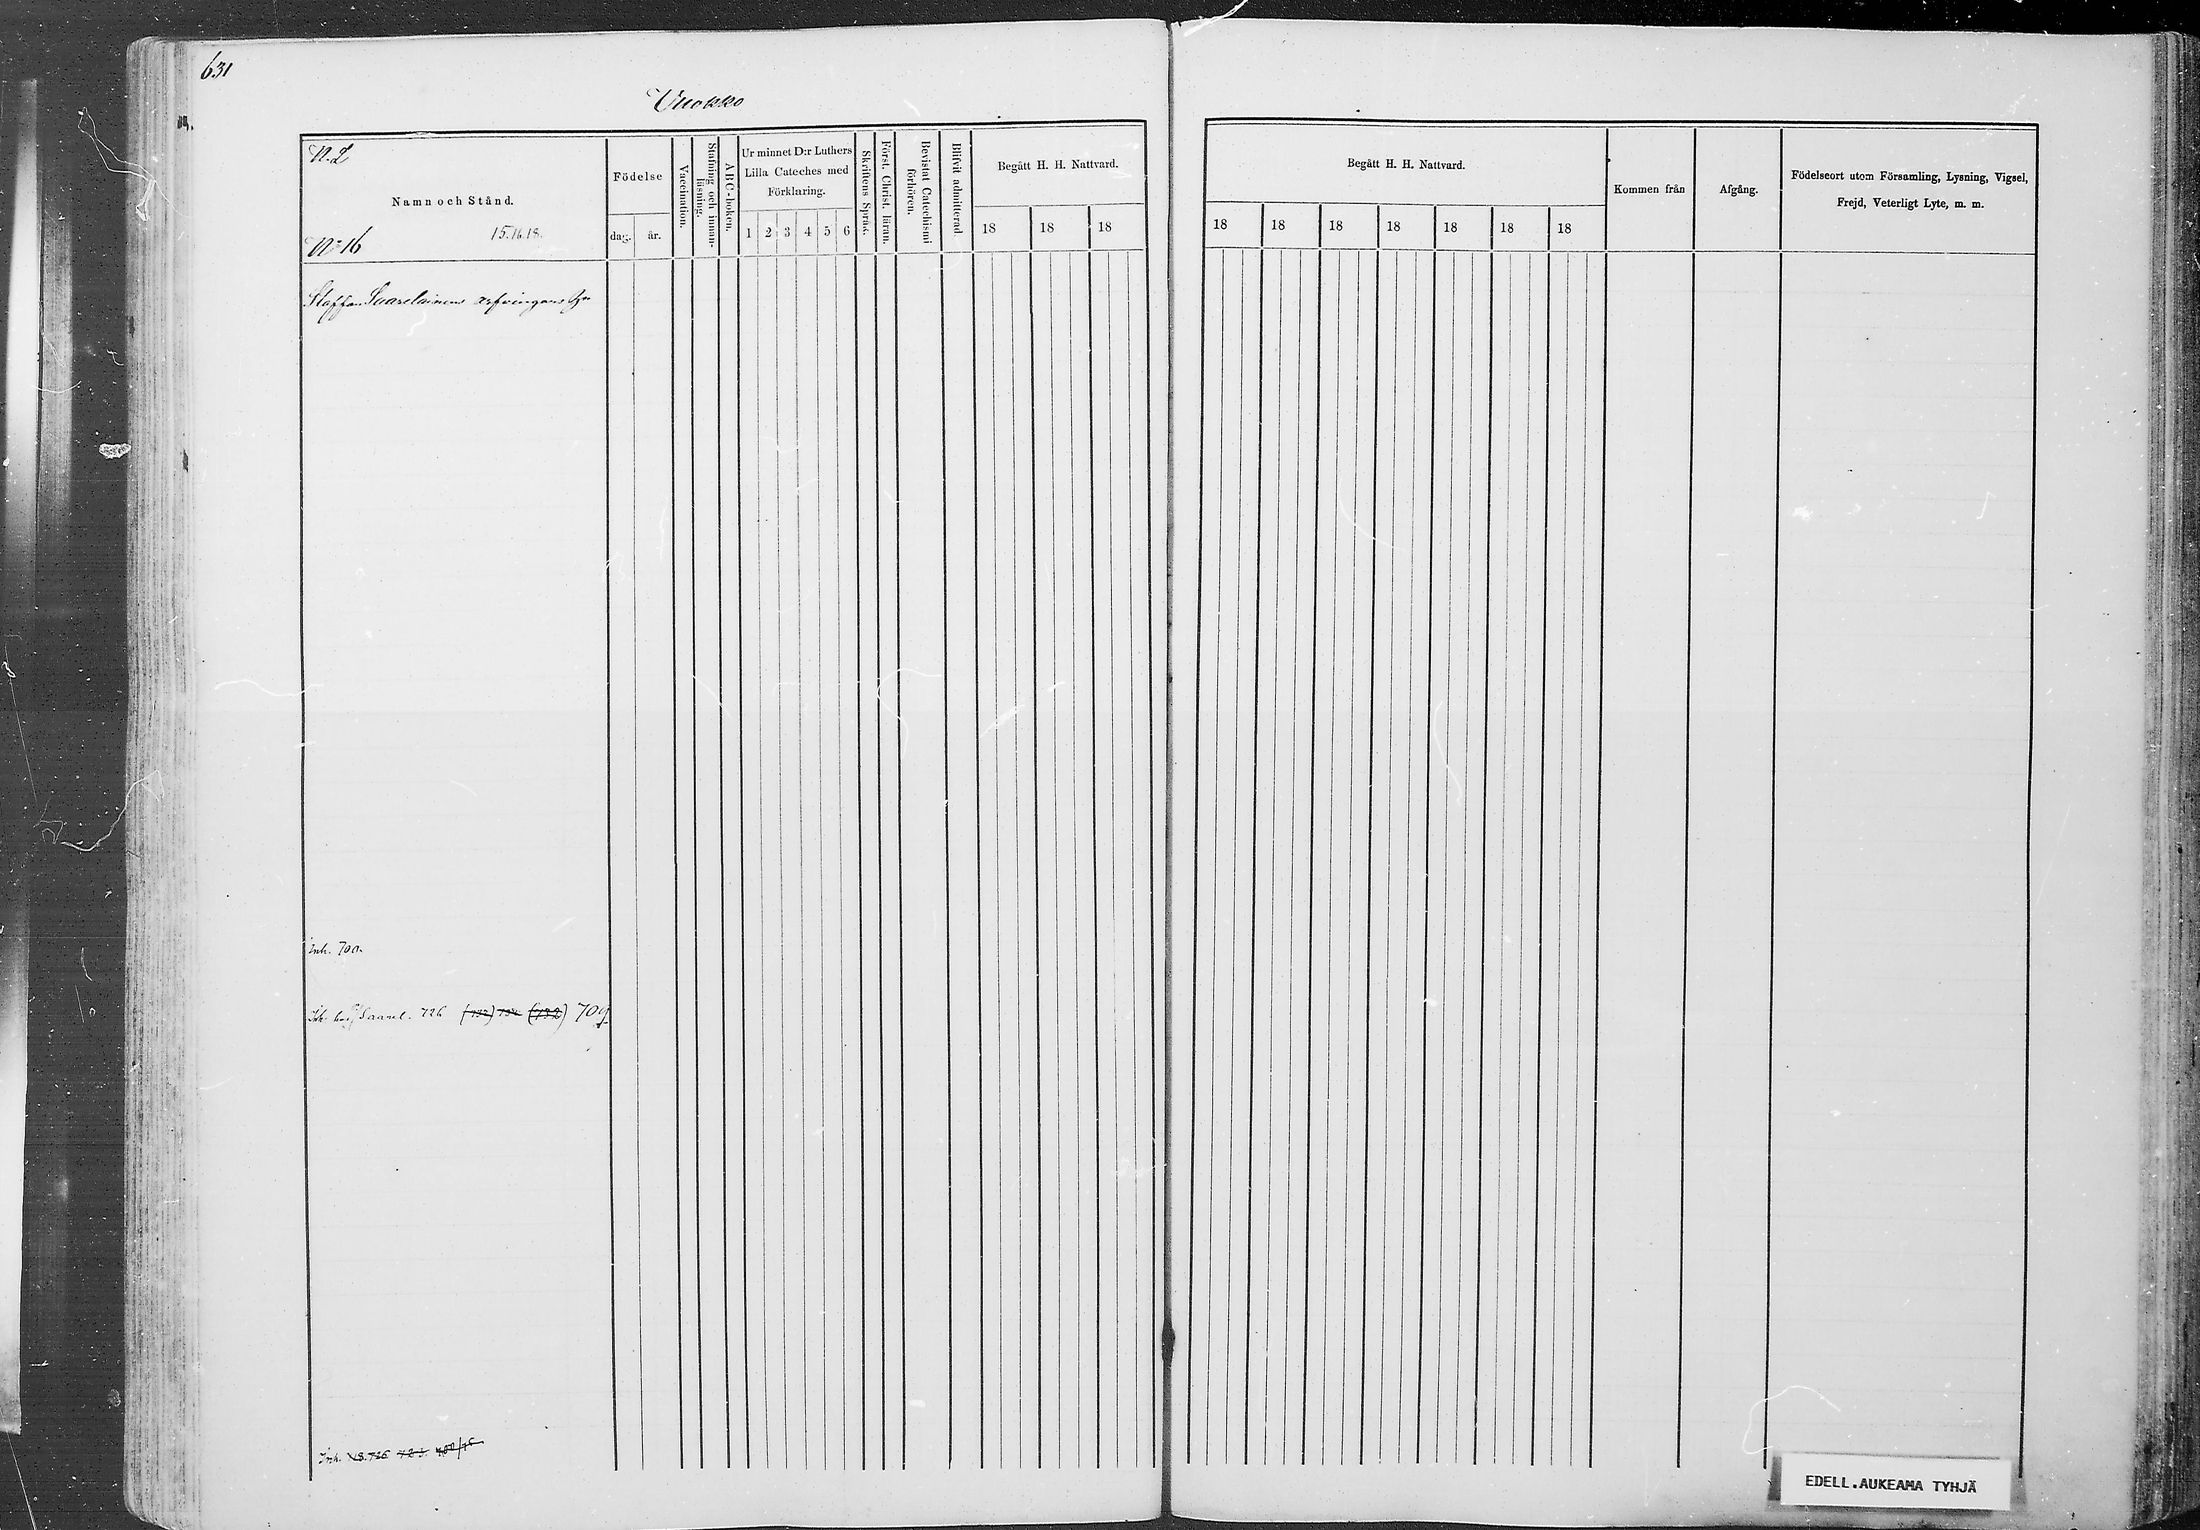 631
Vuokko
N. 2
Namn och Stånd.
No 16 15. 16. 18.
Födelse
dag. år.
Vaccination.
Stafning och innan-
läsning.
A B C-boken.
Ur minnet D:r Luthers
Lilla Cateches med
Förklaring.
1 2 3 4 5 6
Skriftens Språk.
Först. Christ. läran.
Bevistat Catechismi
förhören.
Blifvit admitterad.
Begått H. H. Nattvard.
18 18 18
Begått H. H. Nattvard.
18 18 18 18 18 18 18
Kommen från
Afgång.
Födelseort utom Församling, Lysning, Vigsel,
Frejd, Veterligt Lyte, m. m.
Staffan Saarelainens arfvingars
Inh. 700.
Inh. Saarel. 726 (732) 734 (732) 709
Inh. 726 723
EDELL.AUKEAMA TYHJÄ